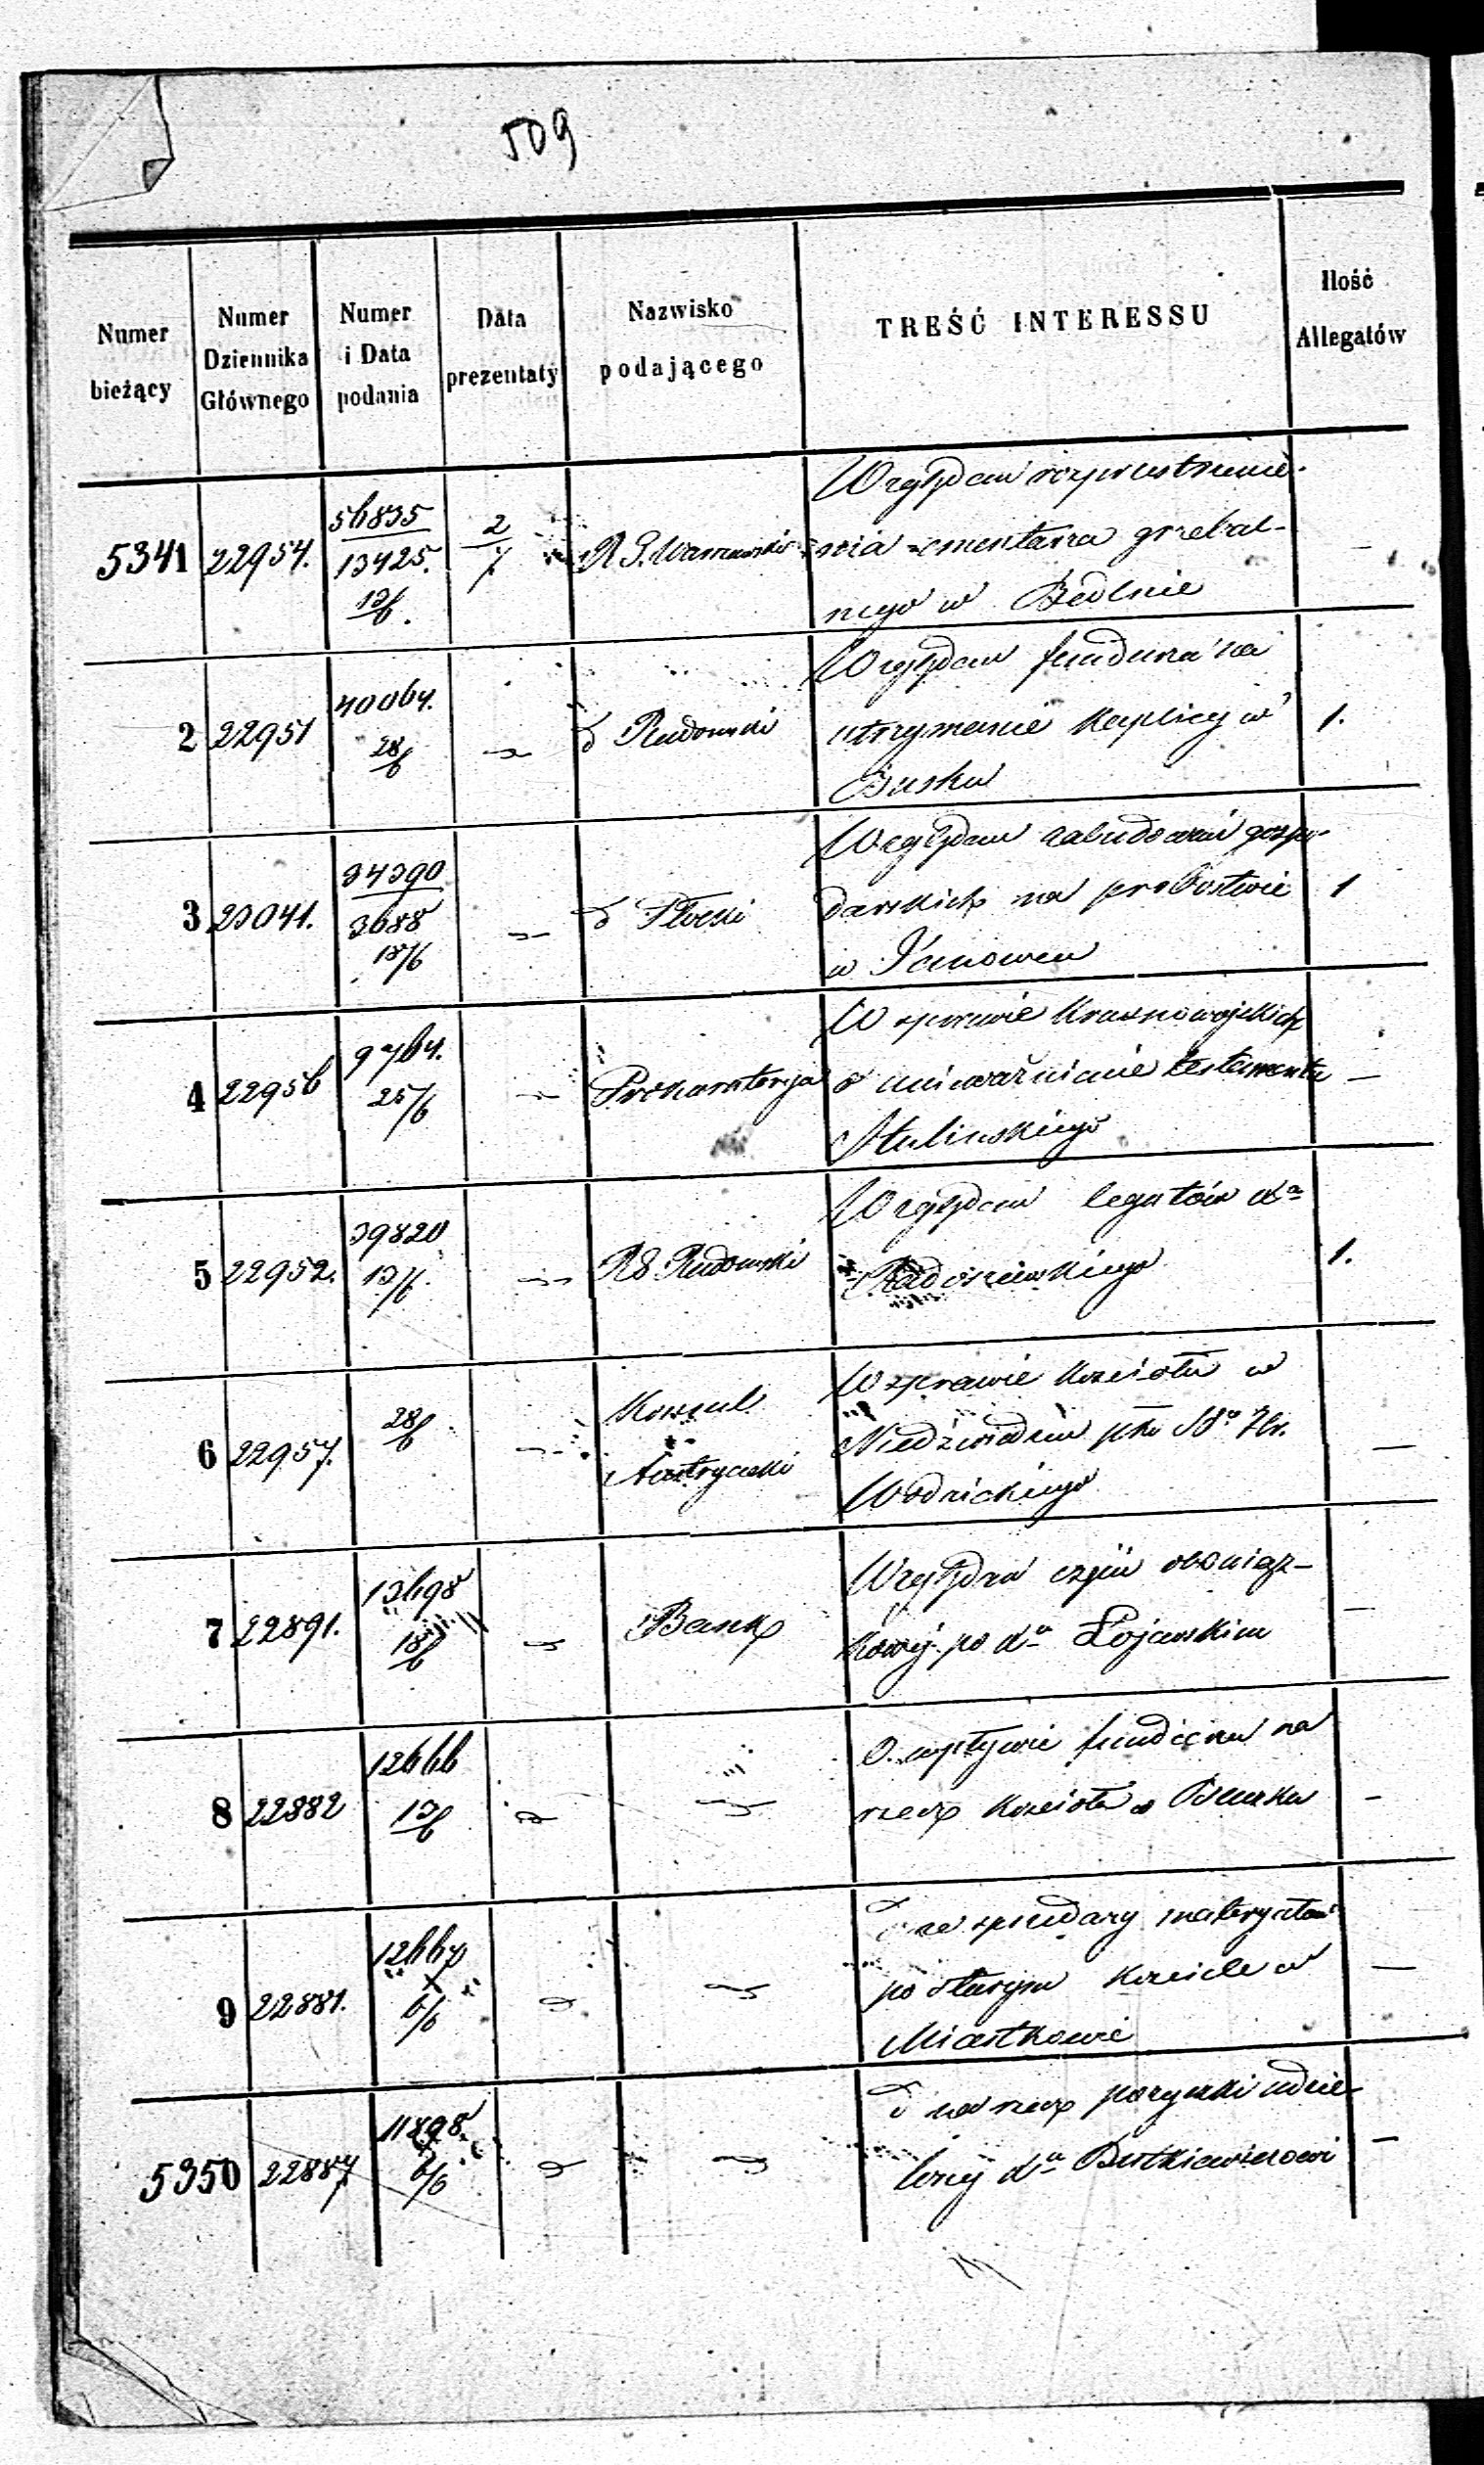 509
Numer bieżący
Numer Dziennika Głównego
Numer i Data podania
Data prezentaty
Nazwisko podającego
TREŚĆ INTERESSU
Ilość Allegatów
5341 22954. 56835 13425. 13/6. 2/7 R. G. Warszawski
Względem rozprzestrzenie-
nia cmentarza grzebal-
nego w Bedlnie
2 22951 40064. 28/6 d Radomski 1.
Względem funduszu na
utrzymanie Kaplicy w
Busku
3 23041. 34390 3688 18/6 d Płocki 1
Względem zabudowań gospo-
darskich na probostwie
w Janowcu
4 22956 9764. 25/6 Prokuratorya —
W sprawie Krasnowojskich
o unieważnienie testamentu
Stulinskiego
5 22952. 39820 13/6. RG. Radomski 1.
Względem legatów
Radoszewskiego
6 22957. 28/6 Konsul Austryacki —
W sprawie Kościoła w
Niedźwiedziu Hr.
Wodzickiego
7 22891. 13698 18/6 Bank —
Względem obowiąz-
kowej po Łojewskim
8 22882 12666 13/6 —
O wpływie funduszu na
rzecz Kościoła w Busku
9 22881. 12667 6/6 —
d ze sprzedaży materyałów
po starym Kościele w
Miastkowie
5350 22887 11898. 6/6 —
d na rzecz pożyczki udzie-
loney Butkiewiczowi